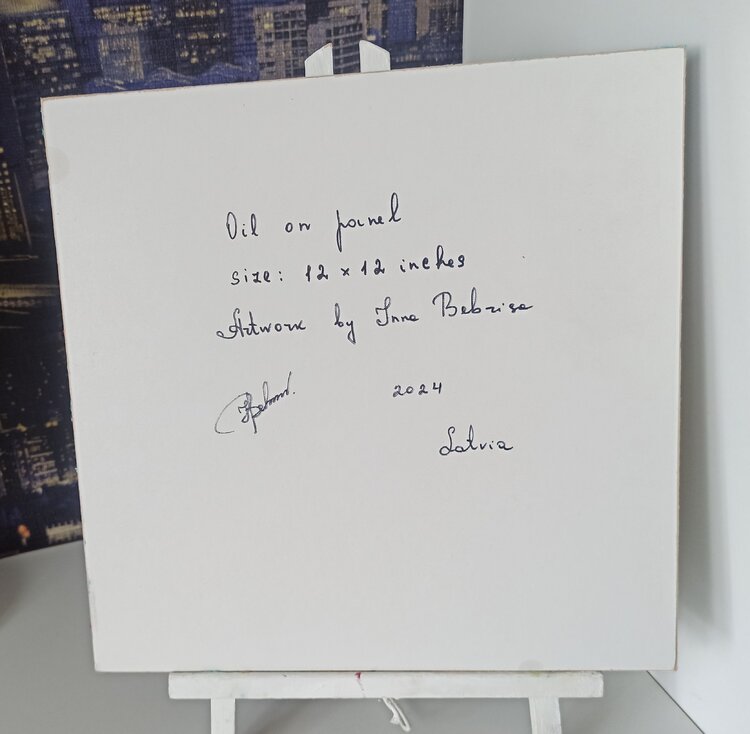 Oil on panel
size: 12 x 12 inches
Artwork by Inna Bebrisa
2024
Latvia